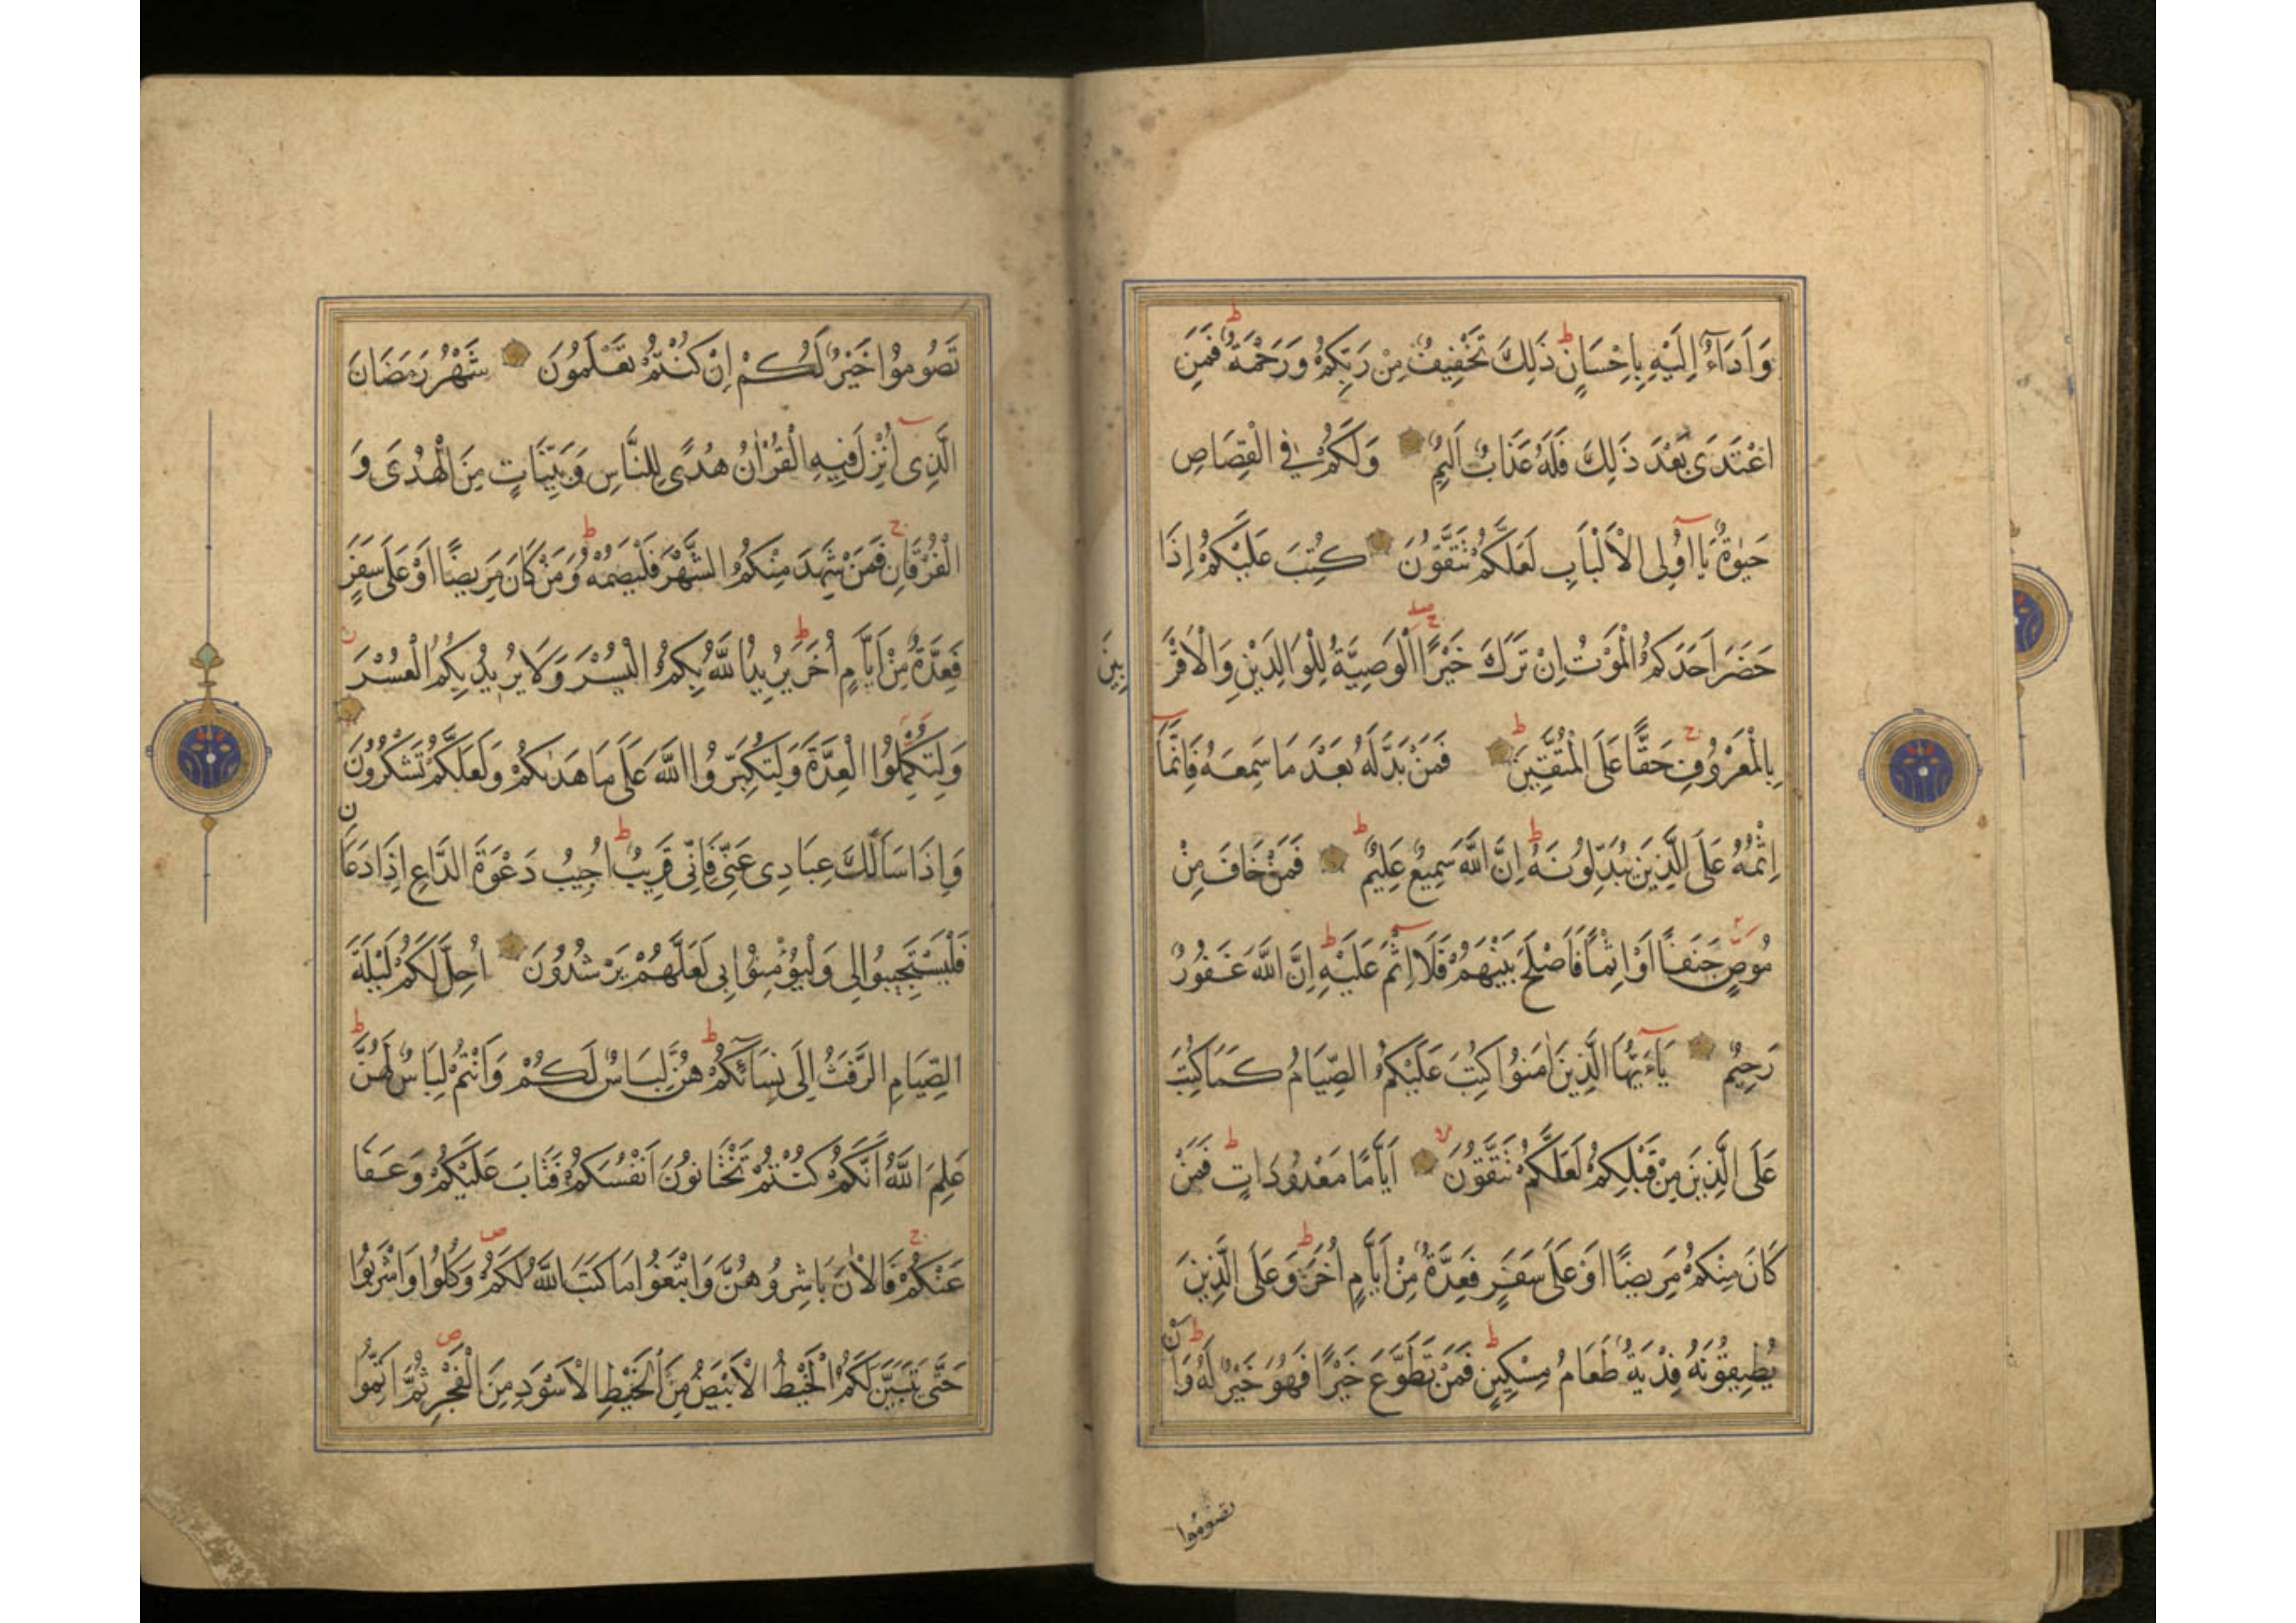 وَاَدَآءٌ اِلَيْهِ بِاِحْسَانٍ ط ذَلِكَ تَخْفِيفٌ مِنْ رَبِّكُمْ وَرَحْمَةٌ ط فَمَنِ
اعْتَدَى بَعْدَ ذَلِكَ فَلَهُ عَذَابٌ اَلِيمٌ وَلَكُمْ فِى الْقِصَاصِ
حَيٰوةٌ يَا اُولِى الْاَلْبَابِ لَعَلَّكُمْ تَتَّقُوْنَ كُتِبَ عَلَيْكُمْ اِذَا
حَضَرَ اَحَدَكُمُ الْمَوْتُ اِنْ تَرَكَ خَيْرًا الْوَصِيَّةُ لِلْوَالِدَيْنِ وَالْاَقْرَ
بِينَ
بِالْمَعْرُوفِ ج حَقًّا عَلَى الْمُتَّقِينَ ط فَمَنْ بَدَّلَهُ بَعْدَ مَا سَمِعَهُ فَاِنَّمَا
اِثْمُهُ عَلَى الَّذِينَ يُبَدِّلُونَهُ ط اِنَّ اللَّهَ سَمِيعٌ عَلِيمٌ ط فَمَنْ خَافَ مِنْ
مُوصٍ جَنَفًا اَوْ اِثْمًا فَاَصْلَحَ بَيْنَهُمْ فَلَا اِثْمَ عَلَيْهِ ط اِنَّ اللَّهَ غَفُورٌ
رَحِيمٌ يَآءَيُّهَا الَّذِينَ اٰمَنُوا كُتِبَ عَلَيْكُمُ الصِّيَامُ كَمَا كُتِبَ
عَلَى الَّذِينَ مِنْ قَبْلِكُمْ لَعَلَّكُمْ تَتَّقُونَ لا اَيَّامًا مَعْدُودَاتٍ ط فَمَنْ
كَانَ مِنْكُمْ مَرِيضًا اَوْ عَلَى سَفَرٍ فَعِدَّةٌ مِنْ اَيَّامٍ اُخَرَ ط وَعَلَى الَّذِينَ
يُطِيقُونَهُ فِدْيَةٌ طَعَامُ مِسْكِينٍ ط فَمَنْ تَطَوَّعَ خَيْرًا فَهُوَ خَيْرٌ لَهُ ط وَاَن
تصوموا
تَصُومُوا خَيْرٌ لَكُمْ اِنْ كُنْتُمْ تَعْلَمُونَ شَهْرُ رَمَضَانَ
الَّذِى اُنْزِلَ فِيهِ الْقُرْاٰنُ هُدًى لِلنَّاسِ وَبَيِّنَاتٍ مِنَ الْهُدَى وَ
الْفُرْقَانِ ج فَمَنْ شَهِدَ مِنْكُمُ الشَّهْرَ فَلْيَصُمْهُ ط وَمَنْ كَانَ مَرِيضًا اَوْ عَلَى سَفَرٍ
فَعِدَّةٌ مِنْ اَيَّامٍ اُخَرَ ط يُرِيدُ اللَّهُ بِكُمُ الْيُسْرَ وَلَا يُرِيدُ بِكُمُ الْعُسْرَ
وَلِتُكْمِلُوا الْعِدَّةَ وَلِتُكَبِّرُوا اللَّهَ عَلَى مَا هَدٰىكُمْ وَلَعَلَّكُمْ تَشْكُرُونَ
وَاِذَا سَاَلَكَ عِبَادِى عَنِّى فَاِنِّى قَرِيبٌ ط اُجِيبُ دَعْوَةَ الدَّاعِ اِذَا دَعَانِ
فَلْيَسْتَجِيبُوا لِى وَلْيُؤْمِنُوا بِى لَعَلَّهُمْ يَرْشُدُونَ اُحِلَّ لَكُمْ لَيْلَةَ
الصِّيَامِ الرَّفَثُ اِلَى نِسَآئِكُمْ ط هُنَّ لِبَاسٌ لَكُمْ وَاَنْتُمْ لِبَاسٌ لَهُنَّ ط
عَلِمَ اللَّهُ اَنَّكُمْ كُنْتُمْ تَخْتَانُونَ اَنْفُسَكُمْ فَتَابَ عَلَيْكُمْ وَعَفَا
عَنْكُمْ ج فَالْاٰنَ بَاشِرُوهُنَّ وَابْتَغُوا مَا كَتَبَ اللَّهُ لَكُمْ ص وَكُلُوا وَاشْرَبُوا
حَتَّى يَتَبَيَّنَ لَكُمُ الْخَيْطُ الْاَبْيَضُ مِنَ الْخَيْطِ الْاَسْوَدِ مِنَ الْفَجْرِ ص ثُمَّ اَتِمُّوا